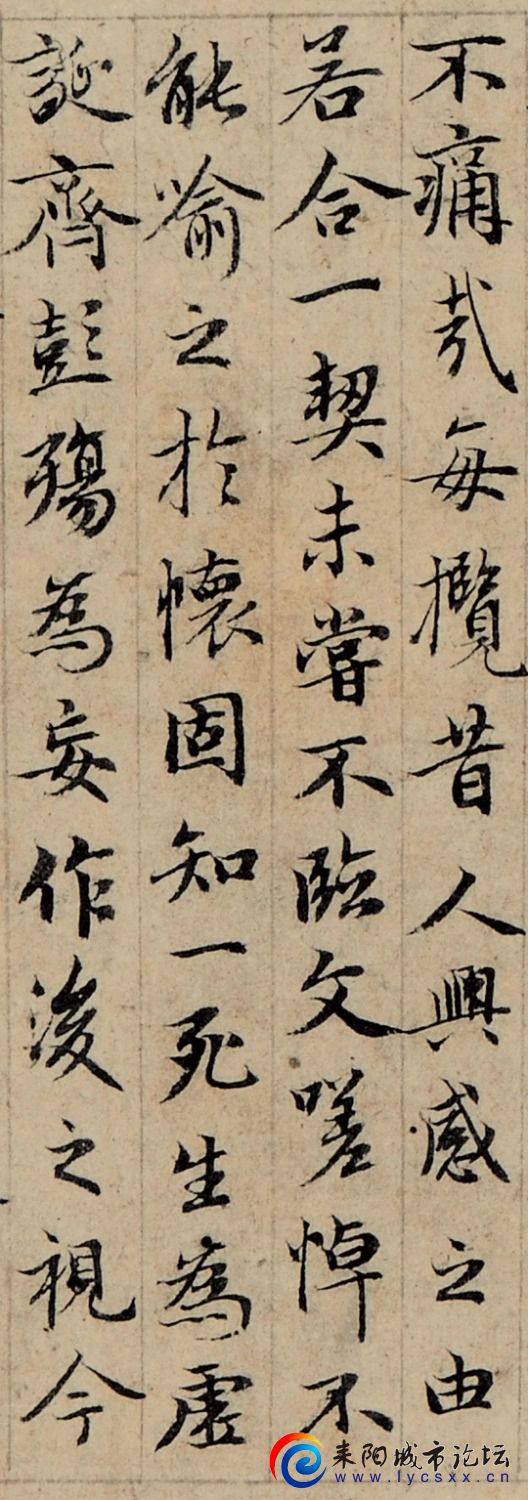 不痛哉每攬昔人興感之由
若合一契未嘗不臨文嗟悼不
能喻之於懷固知一死生為虛
誕齊彭殤為妄作後之視今
耒阳城市论坛
www.lycsxx.cn